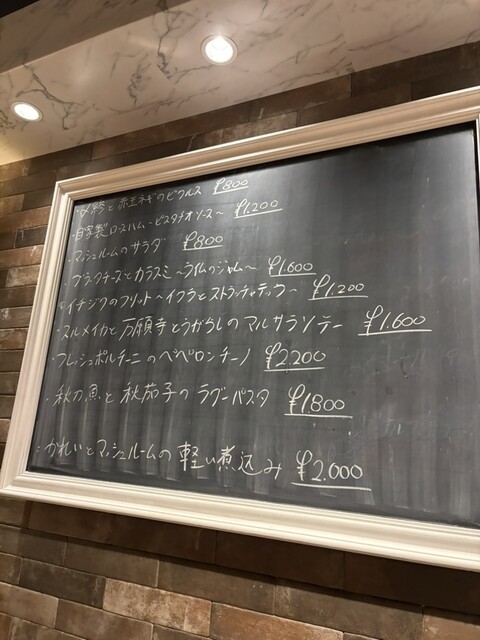 ・〆鯖と赤玉ネギのピクルス ¥800
・自家製ロースハム~ピスタチオソース~ ¥1.200
・マッシュルームのサラダ ¥800
・ブラータチーズとカラスミ~ライムのジャム~ ¥1.600
・イチジクのフリット~イクラとストラッチャテッラ~ ¥1.200
・スルメイカと万願寺とうがらしのマルサラソテー ¥1.600
・フレッシュポルチーニのペペロンチーノ ¥2200
・秋の魚と秋茄子のラグーパスタ ¥1800
・かれいとマッシュルームの軽い煮込み ¥2.000